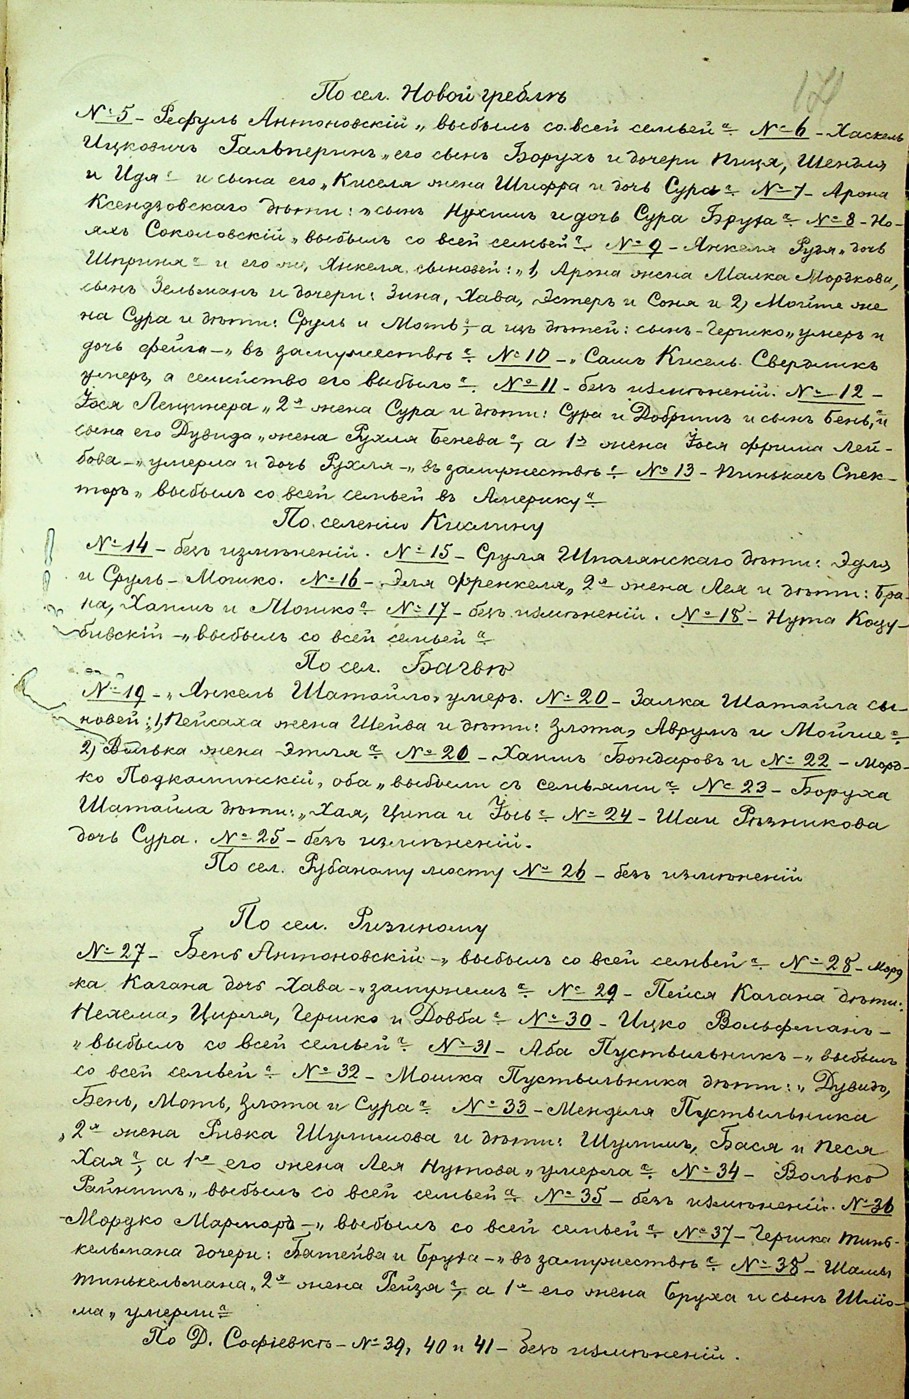 По сел. Новой греблѣ
№ 5 – Рефулъ Антоновскій „ выбылъ со всей семьей“. № 6 – Хаскель
Ицковичъ Гальперинъ „его сынъ Борухъ и дочери Ница, Шендля
и Идя“ и сына его „Киселя жена Шифра и дочь Сура“. № 7 – Арона
Ксендзовскаго дѣти: „сынъ Нухимъ и дочь Сура Бруха“. № 8 – Но-
яхъ Соколовскій „выбылъ со всей семьей“. № 9 – Янкеля Рудя „дочь
Шпринця“ и его же, Янкеля, сыновей: „1, Арона жена Малка Мордкова,
сынъ Зельманъ и дочери: Зина, Хава, Эстеръ и Соня и 2, Мойше же-
на Сура и дѣти: Сруль и Моть“, а изъ дѣтей: сынъ – Гершко „умеръ и
дочь Фейга –„ въ замужествѣ“. № 10 –„ Самъ Кисель Свердликъ
умеръ, а семейство его выбыло“. № 11 – безъ измѣненій. № 12 –
Іося Лещинера „2я жена Сура и дѣти: Сура и Добришъ и сынъ Бень“, и
сына его Дувида „жена Рухля Бенева“, а 1я жена Іося Фрима Лей-
бова –„умерла и дочь Рухля –„ въ замужествѣ“. № 13 – Пинькасъ Спек-
торъ „ выбылъ со всей семьей въ Америку“.
По селенію Кислину
№ 14 – безъ измѣненій. № 15 – Сруля Шполянскаго дѣти: Эдля
и Сруль – Мошко. № 16 – Эля Френкеля „2я жена Лея и дѣти: Бра-
на, Хаимъ и Мошко“. № 17 – безъ измѣненій. № 18 – Нута Коцу-
бивскій –„выбылъ со всей семьей“.
По сел. Багвѣ
№ 19 –„ Янкель Шатайло, умеръ. № 20 – Залка Шатайла сы-
новей: „1, Пейсаха жена Шейва и дѣти: Злота, Аврумъ и Мойше“.
2, Волька жена Этля“. № 20 – Хаимъ Бондаровъ и № 22 – Морд-
ко Подкаминскій, оба „выбыли съ семьями“. № 23 – Боруха
Шатайла дѣти: „Хая, Ципа и Іось“. № 24 – Шаи Рѣзникова
дочь Сура. № 25 – безъ измѣненій.
По сел. Рубаному мосту № 26 – безъ измѣненій
По сел. Ризиному
№ 27 – Бень Антоновскій –„ выбылъ со всей семьей“. № 28 – Морд
ка Кагана дочь Хава –„замужемъ“. № 29 – Пейся Кагана дѣти:
Нехема, Цирля, Гершко и Довба“. № 30 – Ицко Вольфманъ –
„ выбылъ со всей семьей“. № 31 – Аба Пустыльникъ –„ выбылъ
со всей семьей“. № 32 – Мошка Пустыльника дѣти: „ Дувидъ,
Бень, Моть, Злота и Сура“. № 33 – Менделя Пустыльника
„ 2я жена Ривка Шулимова и дѣти: Шулимъ, Бася и Песя
Хая“, а 1я его жена Лея Нутова „умерла“. № 34 – Волько
Райнишъ „ выбылъ со всей семьей“. № 35 – безъ измѣненій. № 36
– Мордко Мармаръ –„ выбылъ со всей семьей“. № 37 – Гершка Тинь-
кельмана дочери: Батейва и Бруха –„ въ замужествѣ“. № 38 – Шамы
Тинькельмана „2я жена Рейзя“, а 1я его жена Бруха и сынъ Шлио-
ма „ умерли“.
По Д. Софіевкѣ – № 39, 40 и 41 – безъ измѣненій.